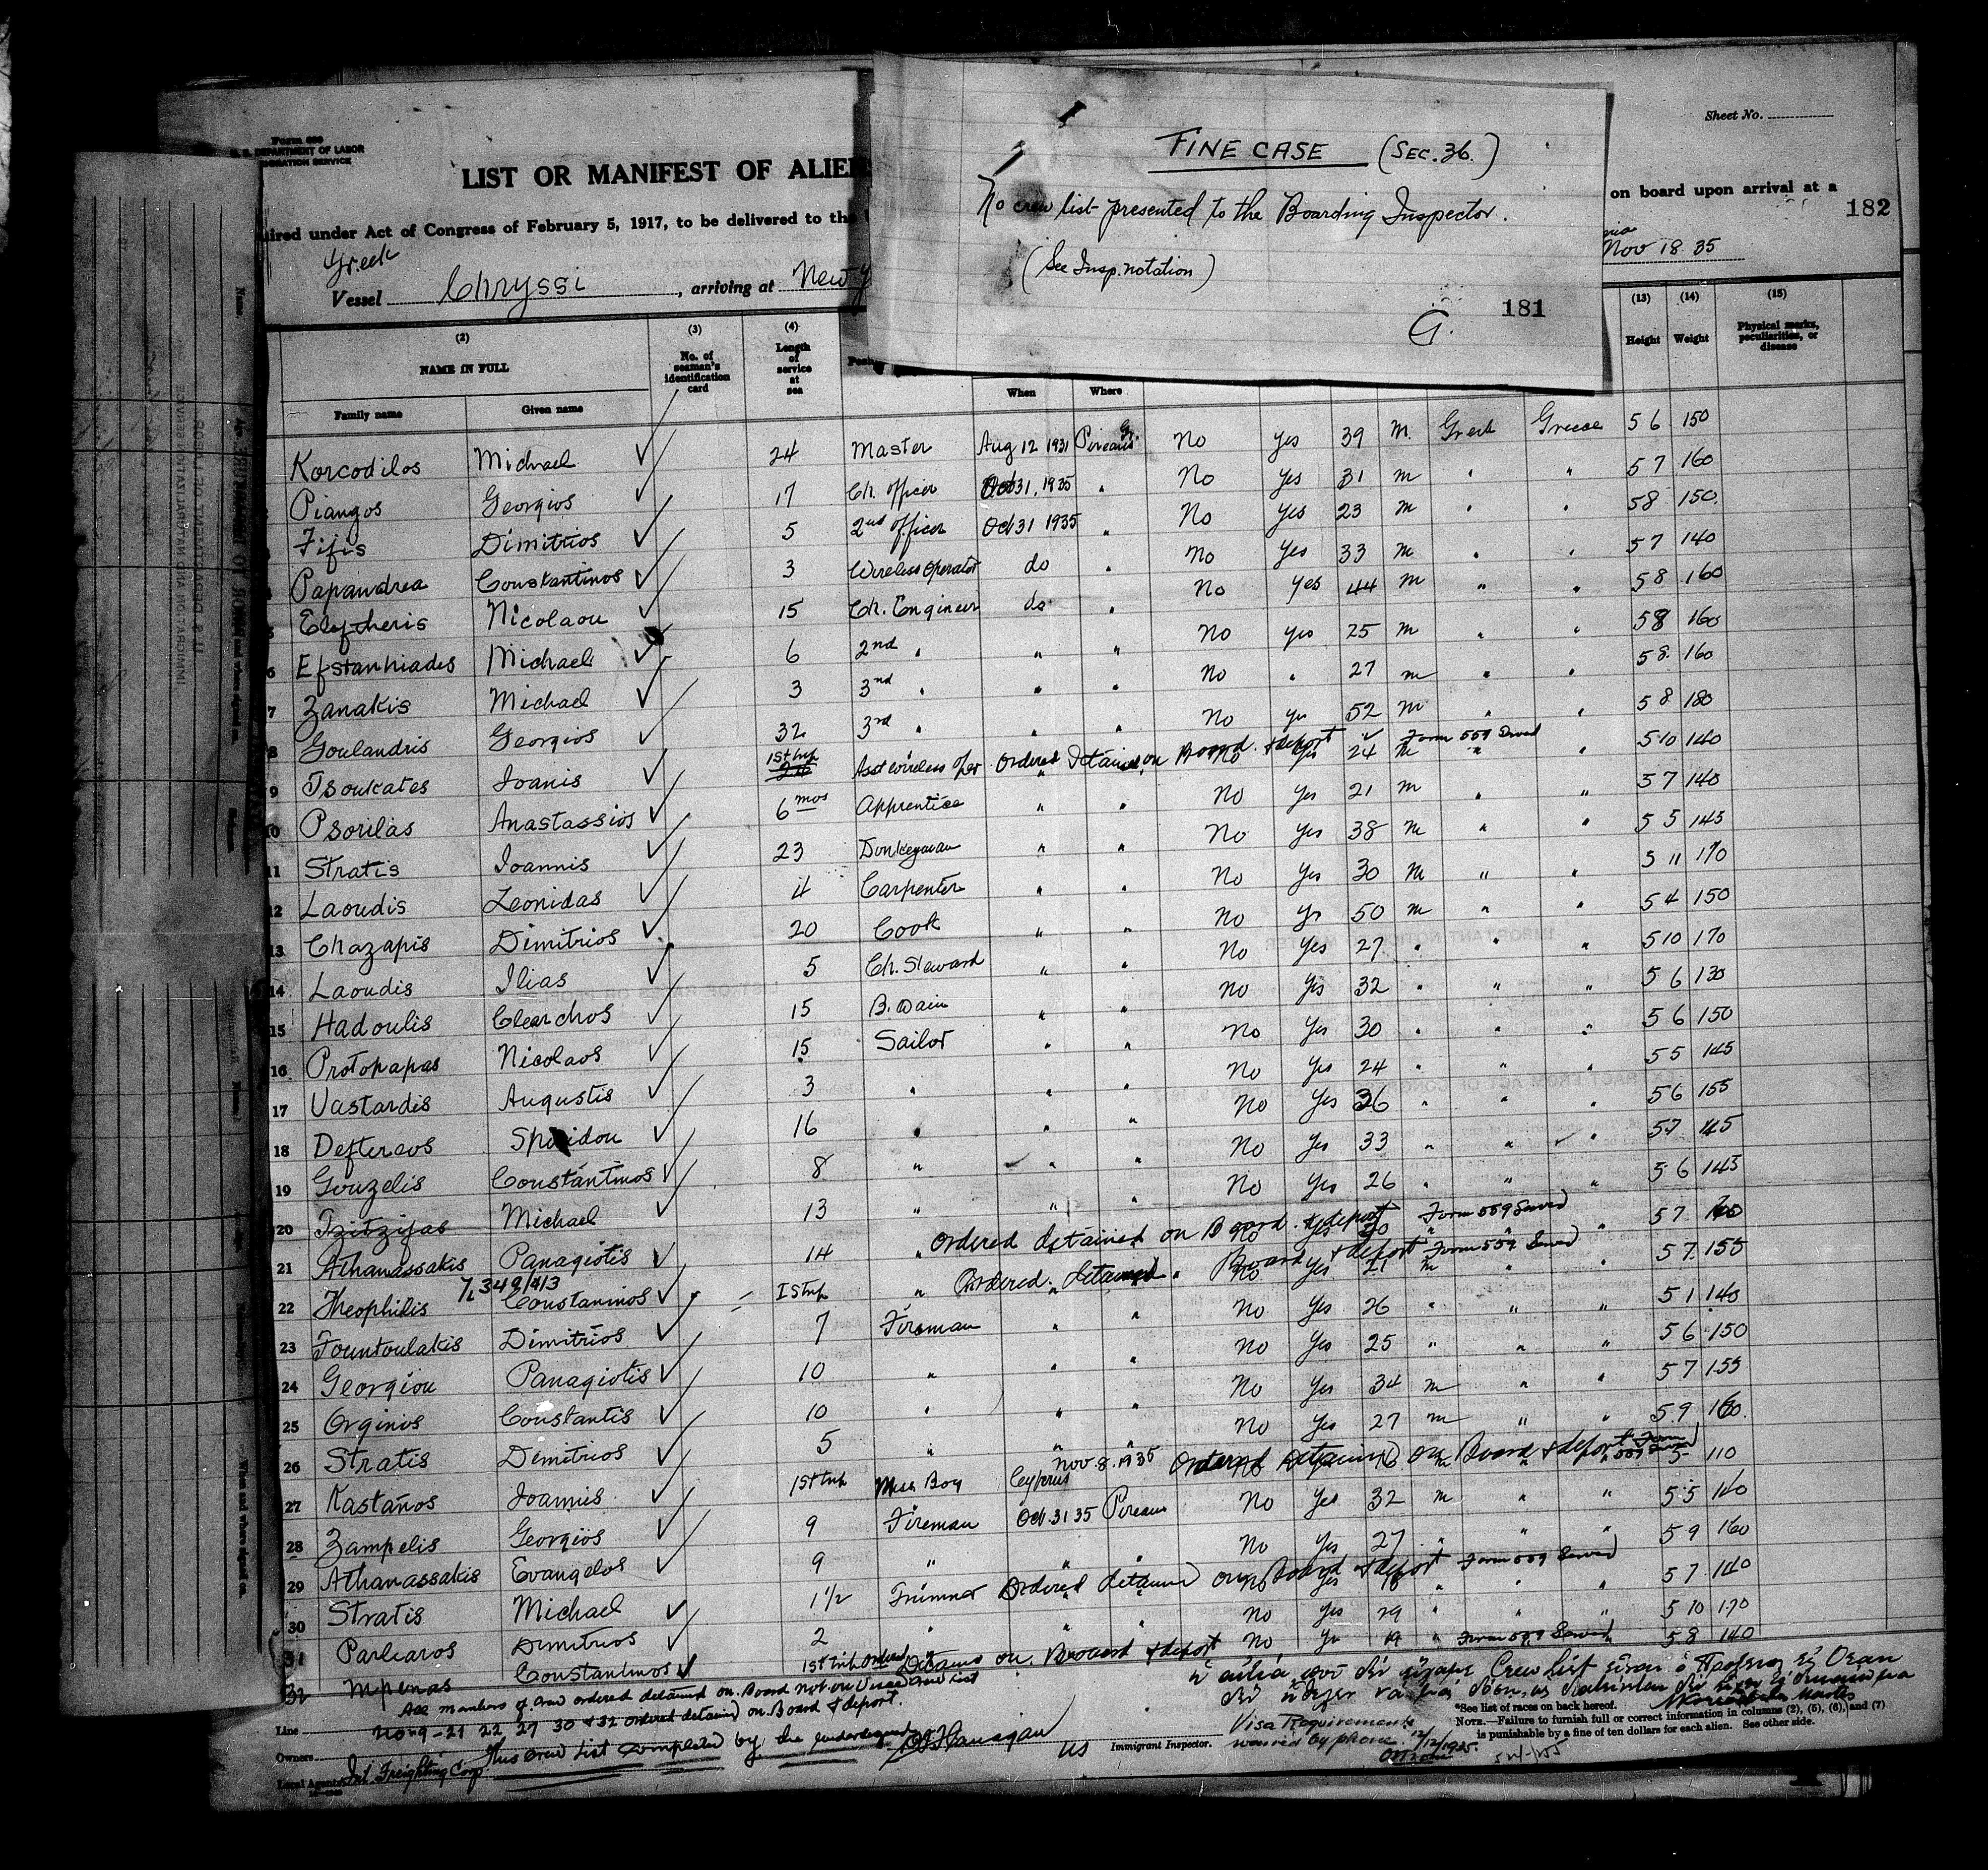 Form 680
U. S. DEPARTMENT OF LABOR
IMMIGRATION SERVICE
Sheet No.
LIST OR MANIFEST OF ALIE
FINE CASE (SEC. 36.)
No crew list presented to the Boarding Inspector.
(See Insp. notation)
G. 181
on board upon arrival at a
182
uired under Act of Congress of February 5, 1917, to be delivered to the
Greek
Vessel Chryssi, arriving at New Y
Nov 18 35
(2) (3) (4) (13) (14) (15)
NAME IN FULL No. of seaman's identification card Length of service at sea Height Weight Physical marks, peculiarities, or disease
Family name Given name When Where
Korcodilos Michael ✓ 24 Master Aug 12 1931 Pireaus Gr. No Yes 39 M. Greek Greece 5 6 150
Piangos Georgios ✓ 17 Ch. officer Oct 31, 1935 " No Yes 31 m " " 5 7 160
Fifis Dimitrios ✓ 5 2nd officer Oct 31 1935 " No Yes 23 m " " 5 8 150
Papandrea Constantinos ✓ 3 Wireless Operator do " No Yes 33 m " " 5 7 140
5 Eleftheris Nicolaou ✓ 15 Ch. Engineer do " No Yes 44 m " " 5 8 160
6 Efstanhiades Michael ✓ 6 2nd " " " No Yes 25 m " " 5 8 160
7 Zanakis Michael ✓ 3 3nd " " " No " 27 m " " 5 8 160
8 Goulandris Georgios ✓ 32 3rd " " " No Yes 52 m " " 5 8 180
9 Tsoukates Ioanis ✓ 1st trip Asst wireless oper Ordered Detained on Board & deport No Yes 24 m Form 559 Served " 5 10 140
10 Psorilas Anastassios ✓ 6 mos Apprentice " " No Yes 21 m " " 5 7 140
11 Stratis Ioannis ✓ 23 Donkeyman " " No Yes 38 m " " 5 5 145
12 Laoudis Leonidas ✓ 4 Carpenter " " No Yes 30 m " " 5 11 170
13 Chazapis Dimitrios ✓ 20 Cook " " No Yes 50 m " " 5 4 150
14 Laoudis Ilias ✓ 5 Ch. Steward " " No Yes 27 " " " 5 10 170
15 Hadoulis Clearchos ✓ 15 B. Wain " " No Yes 32 " " " 5 6 130
16 Protopapas Nicolaos ✓ 15 Sailor " " No Yes 30 " " " 5 6 150
17 Vastardis Augustis ✓ 3 " " " No Yes 24 " " " 5 5 145
18 Deftereos Spiridou ✓ 16 " " " No Yes 36 " " " 5 6 155
19 Gouzelis Constantinos ✓ 8 " " " No Yes 33 " " " 5 7 145
20 Tzitzifas Michael ✓ 13 " " " No Yes 26 " " " 5 6 145
21 Athanassakis Panagiotis ✓ 14 " Ordered detained on Board & deport No Yes 30 " Form 559 Served " 5 7 160
7, 349/413
22 Theophilis Constaninos ✓ 1st trip " Ordered detained " Board & deport No Yes 21 m Form 559 Served " 5 7 155
23 Fountoulakis Dimitrios ✓ 7 Fireman " " No Yes 26 " " " 5 1 140
24 Georgiou Panagiotis ✓ 10 " " " No Yes 25 " " " 5 6 150
25 Orginos Constantis ✓ 10 " " " No Yes 34 m " " 5 7 155
26 Stratis Demitrios ✓ 5 " " " No Yes 27 m " " 5 9 160
27 Kastanos Ioannis ✓ 1st trip Mess Boy Nov. 8. 1935 Cyprus Ordered Detained on Board & deport Form 559 Served 16 5 110
28 Zampelis Georgios ✓ 9 Fireman Oct. 31 35 Pireaus No Yes 32 m " " 5 5 140
29 Athanassakis Evangelos ✓ 9 " " " No Yes 27 " " " 5 9 160
30 Stratis Michael ✓ 1 1/2 Trimmer Ordered detained on Board & deport No Yes 18 " Form 559 Served " 5 7 140
31 Parliaros Dimitrios ✓ 2 " " " No Yes 29 " " " 5 10 170
32 Mpenas Constantinos ✓ 1st trip Ordered Detained on Board & deport No Yes 19 " Form 559 Served " 5 8 140
All members of crew ordered detained on Board not on Visaed crew list
Line No 9-21 22 27 30 & 32 ordered detained on Board & deport.
Owners This crew list completed by the undersigned
Local Agents Int. Freighting Corp.
US Immigrant Inspector.
Visa Requirements waived by phone 12/12/1935
*See list of races on back hereof.
NOTE.—Failure to furnish full or correct information in columns (2), (5), (6), and (7)
is punishable by a fine of ten dollars for each alien. See other side.